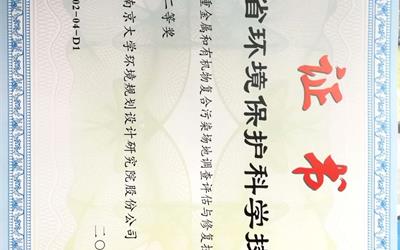 证书
省环境保护科学技
重金属和有机物复合污染场地调查评估与修复技
二等奖
南京大学环境规划设计研究院股份公司
二〇
02-04-D1